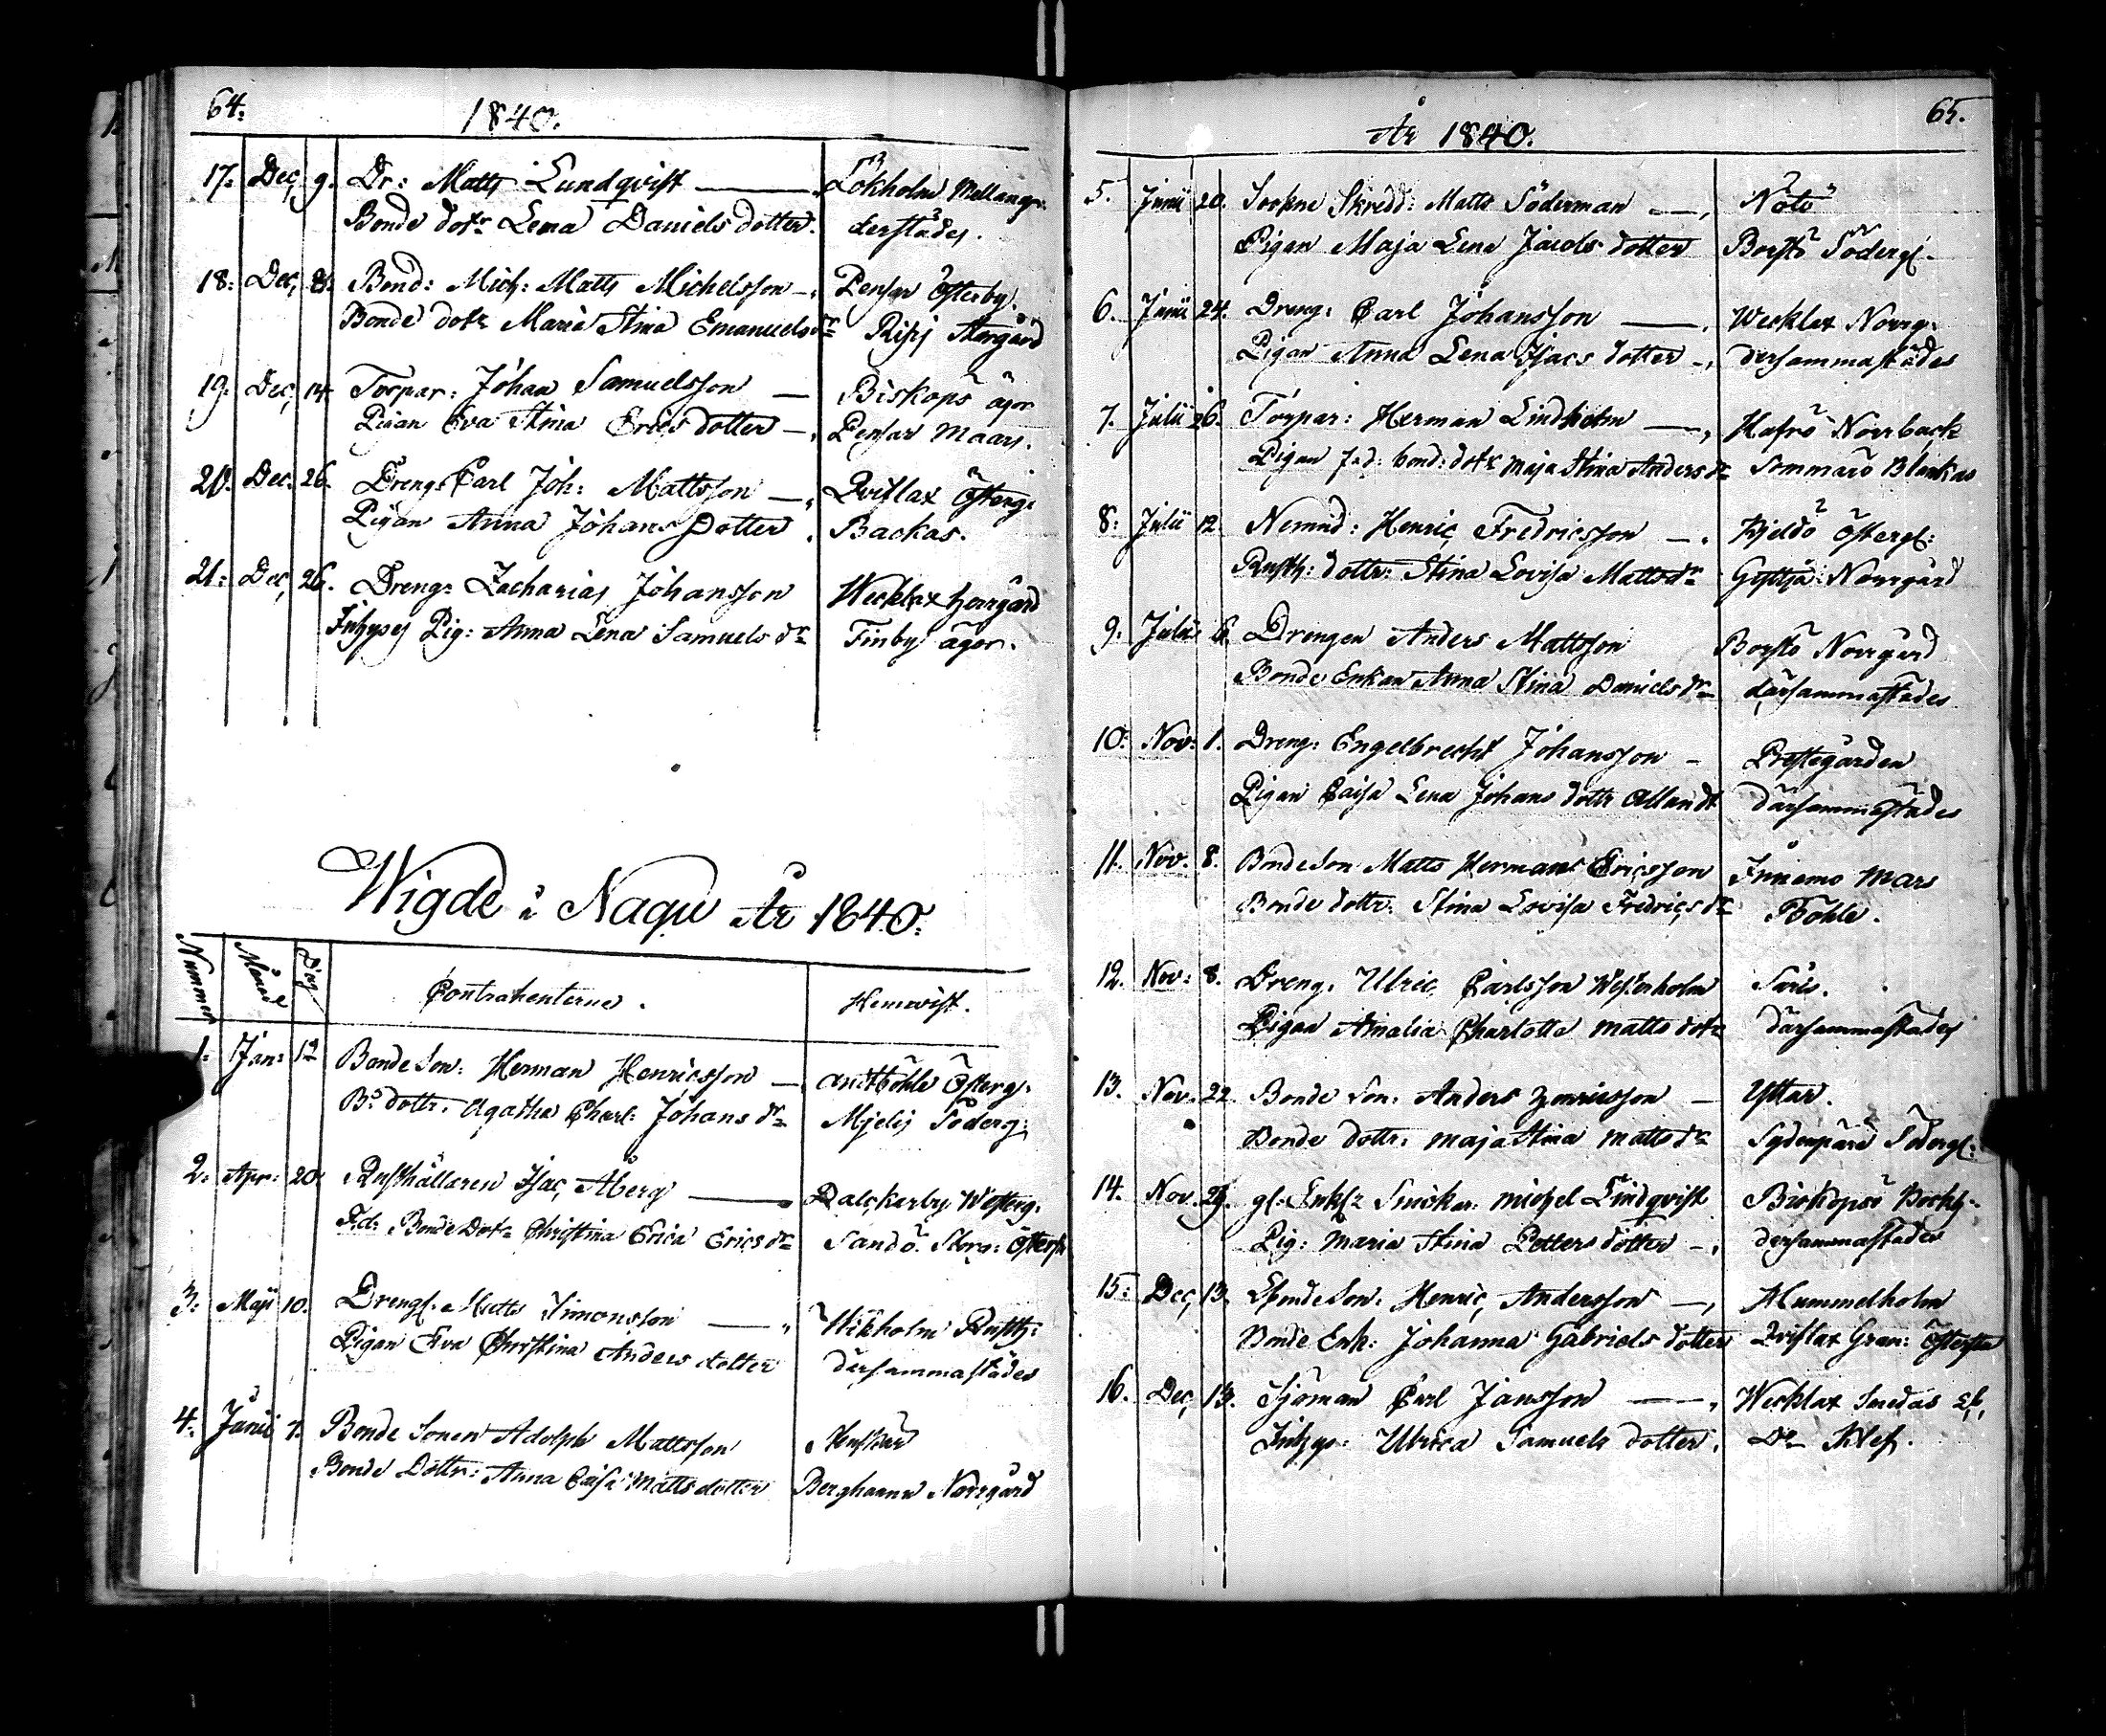 64.
1840.
17. Dec, 9. Dr: Matts Lundqvist — Lökholm Mellang:
Bonde dotr Lena Daniels dotter. derstädes.
18. Dec, 8. Bond: Mich: Matts Michelsson — Pensar Österby.
Bonde dotr Maria Stina Emanuels dr Risis Storgård
19. Dec, 14. Torpar: Johan Samuelsson — Biskopsö ägor
Pigan Eva Stina Erics dotter — Pensar Maars.
20. Dec. 26. Dreng: Carl Joh: Mattsson — Qviflax Österg:
Pigan Anna Johans Dotter. Backas.
21. Dec, 26. Dreng: Zacharias Johansson Wecklax Norrgård
Inhyses Pig: Anna Lena Samuels dr Finby ägor.
Wigde i Nagu År 1840.
Nummer Månad Dag Contrahenterne. Hemvist.
1. Jan: 12 Bonde Son: Herman Henricsson — Andtböhle Österg:
Bd dottr. Agatha Charl: Johans dr Mjelis Söderg:
2. Apr: 20. Rusthållaren Isac Åberg — Dalckarby Westerg.
F.d: Bonde Dotr Christina Erica Erics dr Sandö Storg:
3. Maji 10. Drengs. Matts Simonsson — Wikholm Rusth:
Pigan Eva Christina Anders dotter dersammastädes
4. Junii 7. Bonde Sonen Adolph Mattsson
Bonde Dottr: Anna Caisa Matts dotter Berghamn Norrgård
65.
År 1840.
5. Junii 20. Sockne Skredd: Matts Söderman — Nötö
Pigan Maja Lena Jacobs dotter Borstö Södergl.
6. Junii 24. Dreng: Carl Johansson — Wecklax Norrg:
Pigan Anna Lena Isacs dotter — dersammastädes
7. Julii 26. Torpar: Herman Lindholm — Hafrö Norrback
Pigan f.d: bond: dotr Maja Stina Anders dr Sommarö Blankas
8. Julii 12. Nemnd: Henric Fredricsson — Kjeldö Östergl:
Rusth: dottr: Stina Lovisa Matts dr Gyttja Norrgård
9. Julii 6. Drengen Anders Mattsson Borstö Norrgård
Bonde Enkan Anna Stina Daniels dr därsammastädes
10. Nov: 1. Dreng: Engelbrecht Johansson — Prestegården
Pigan Caisa Lena Johans dottr Allandt därsammastädes
11. Nov. 8. Bonde Son Matts Hermans Ericsson Innamo Mars
Bonde dottr: Stina Lovisa Fredrics dr Böhle.
12. Nov: 8. Dreng. Ulric Carlsson Westerholm
Pigan Amalia Charlotta Matts dotr därsammastädes
13. Nov. 22. Bonde Son: Anders Henricsson — Yttar.
Bonde dottr: Maja Stina Matts dr Sydenperä Södergl:
14. Nov. 29. Snickar: Michel Lindqvist Biskopsö
Pig: Maria Stina Petters dotter — dersammastädes
15. Dec, 13. Bonde Son: Henric Andersson — Mummelholm
Bonde Enk: Johanna Gabriels dotter Qviflax Gran:
16. Dec, 13. Sjöman Carl Jansson — Wecklax
Inhys: Ulrica Samuels dotter. Do Klef.